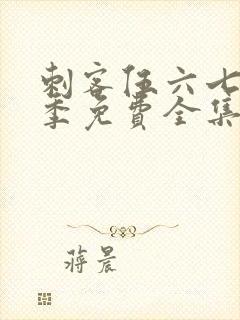 刺客伍六七
季免費全集
蔣晨